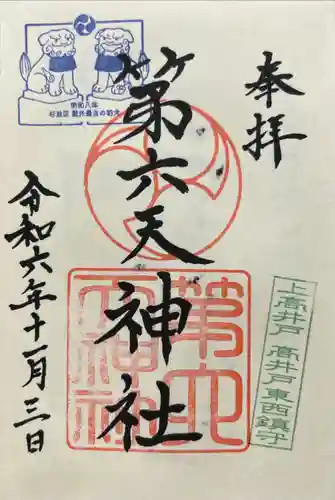 奉拝
第六天神社
令和六年十一月三日
明和八年
杉並区 戦外最古の狛犬
第六天神社
上高井戸 高井戸東西鎮守